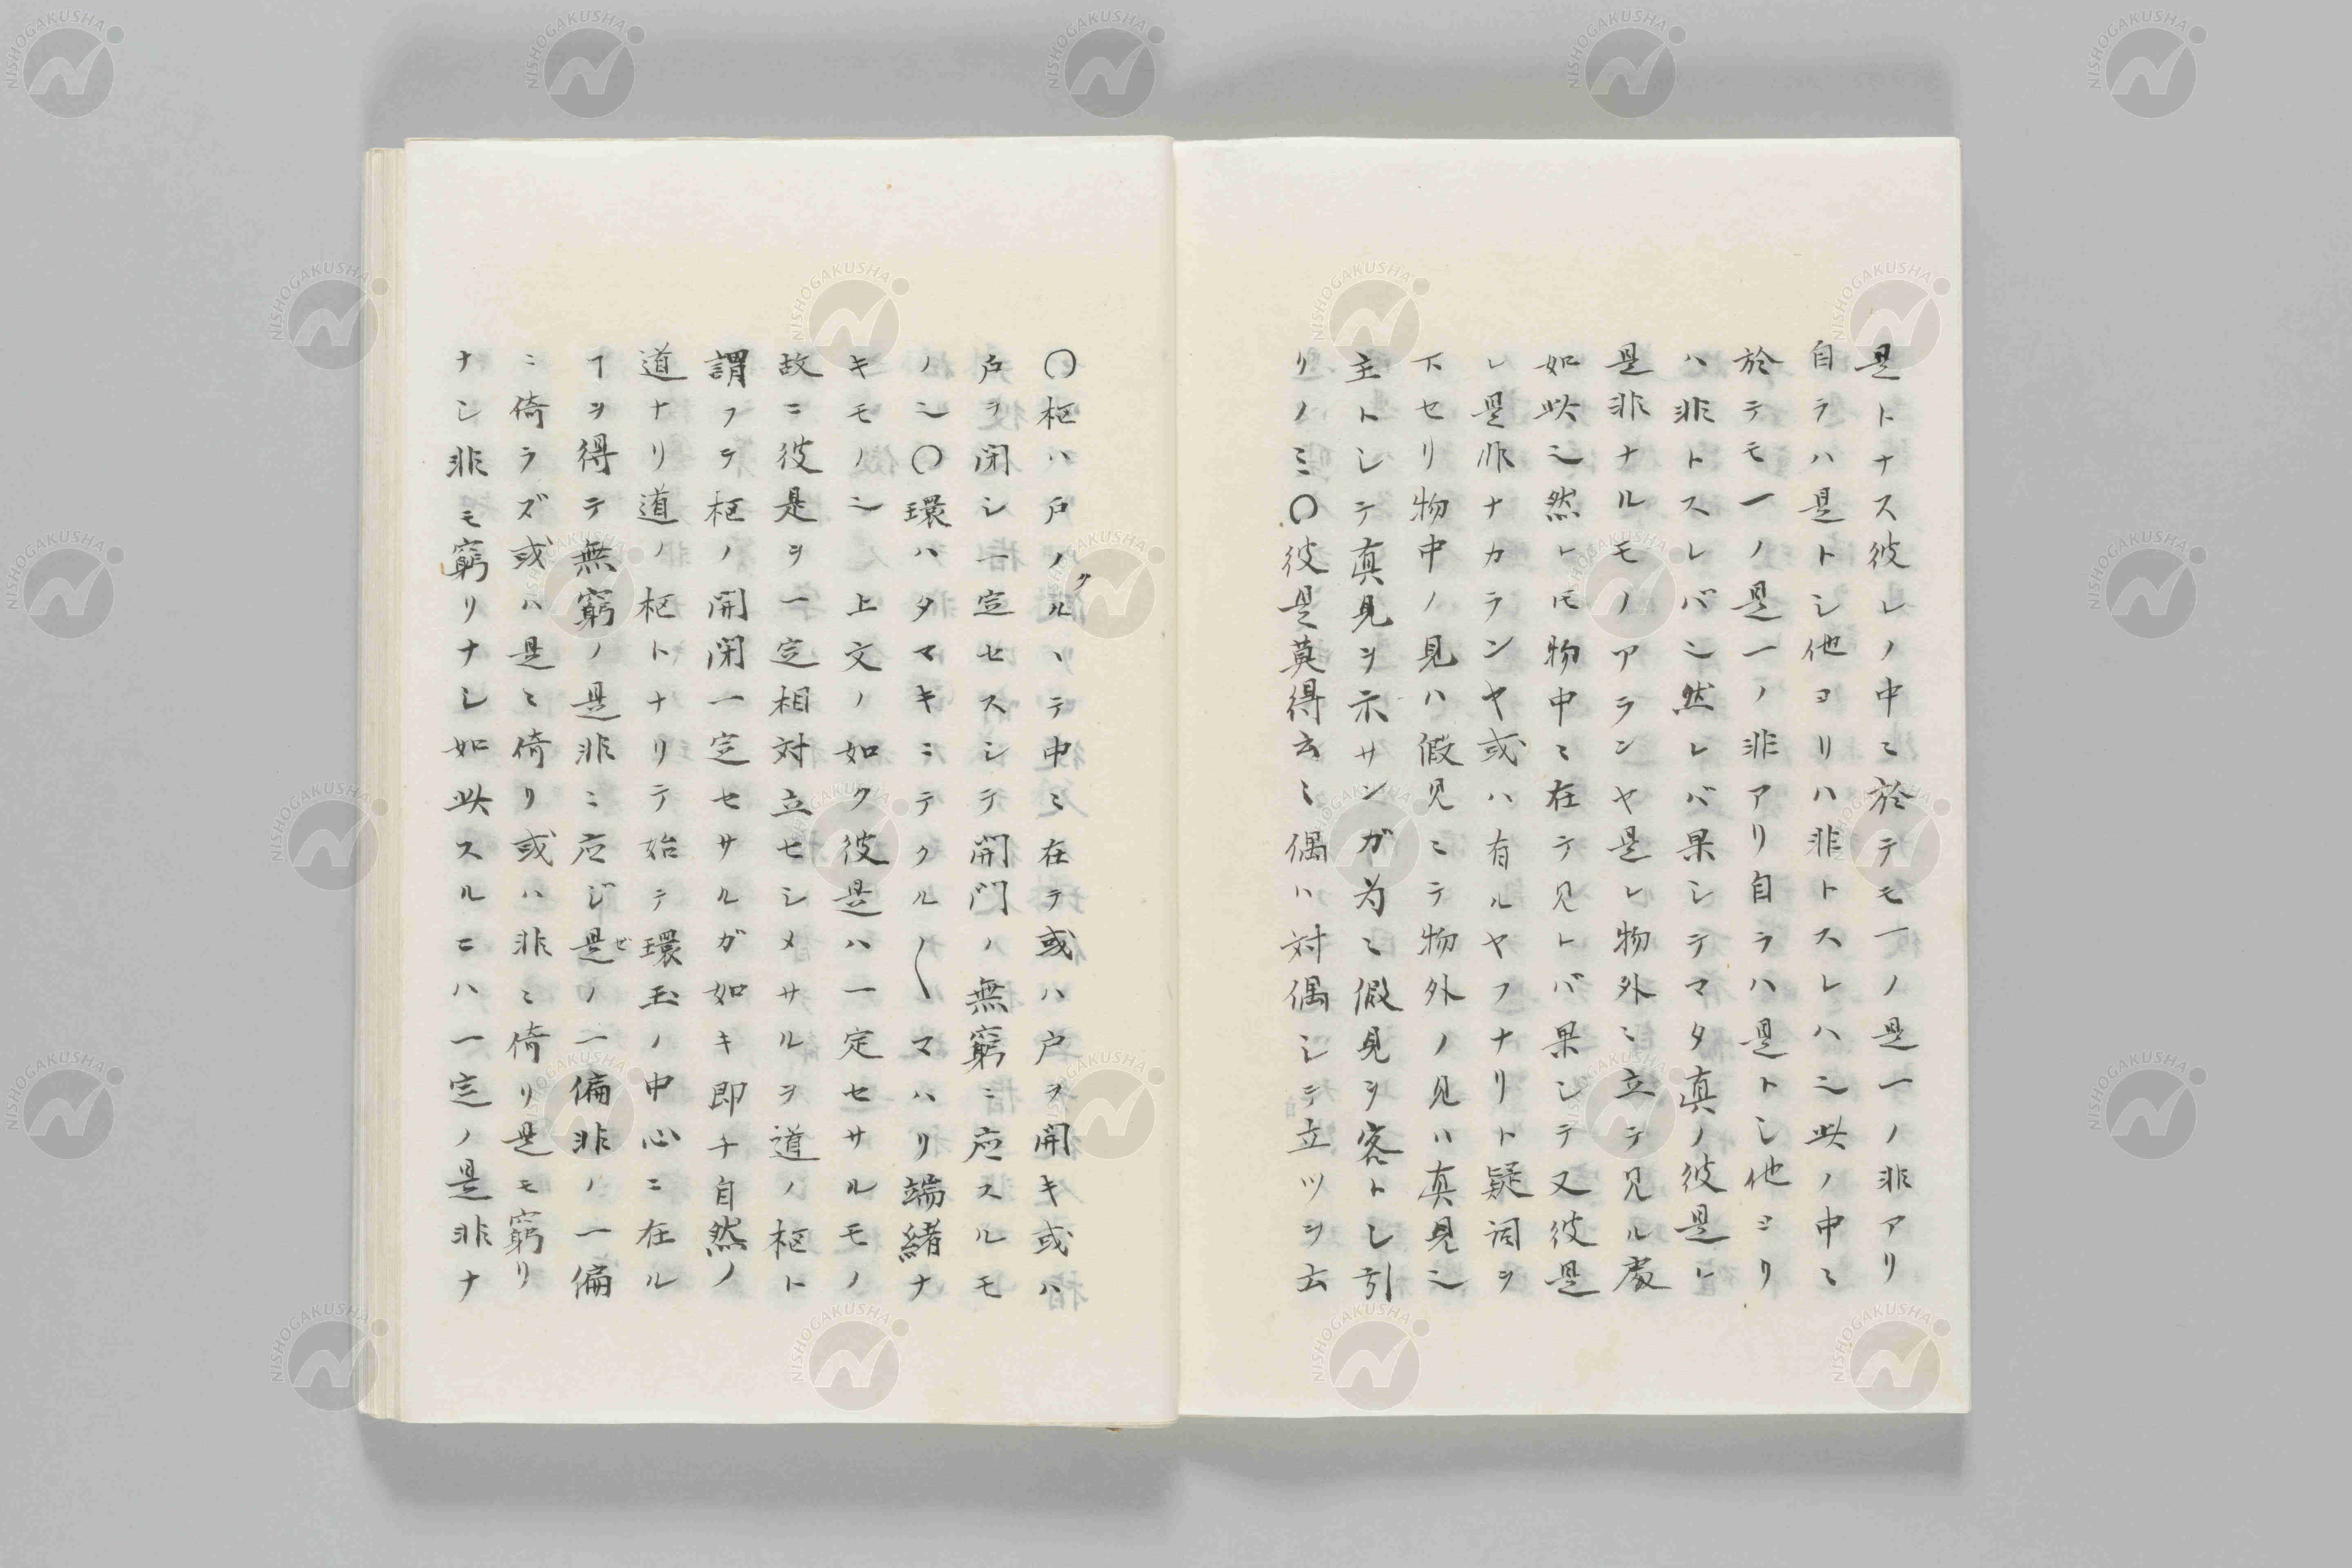 是トナス彼レノ中ミ於テモ一ノ是一ノ非アリ
自ラハ是トシ他ヨリハ非トスレハ乄此ノ中ミ
於テモ一ノ是一ノ非アリ自ラハ是トシ他ヨリ
ハ非トスレバ乄然レバ果シテマタ真ノ彼是レ
是非ナルモノアランヤ是レ物外ミ立テ見ル處
如此乄然レ𪜈物中ミ在テ見レバ果シテ又彼是
レ是非ナカランヤ或ハ有ルヤフナリト疑詞ヲ
下セリ物中ノ見ハ假見ミテ物外ノ見ハ真見乄
主トシテ真見ヲ示サンガ为ミ假見ヲ客トし引
リノミ〇彼是莫得云ミ偶ハ対偶シテ立ツヲ云
〇枢ハ戸ノクルヽテ中ミ在テ或ハ戸ヲ開キ或ハ
戸ヲ閉シ一定セスシテ開門ノ無窮ミ应スルモ
ノ乄〇環ハタマキニテクル〱マハリ端緒ナ
キモノ乄上文ノ如ク彼是ハ一定セサルモノ
故ニ彼是ヲ一定相対立セシメサルヲ道ノ枢ト
謂フテ枢ノ開閉一定セサルガ如キ即チ自然ノ
道ナリ道ノ枢トナリテ始テ環玉ノ中心ニ在ル
ヿヲ得テ無窮ノ是非ニ应ジ是ゼノ一偏非ノ一偏
ニ倚ラズ或ハ是ミ倚リ或ハ非ミ倚リ是モ窮リ
ナシ非モ窮リナシ如此スルニハ一定ノ是非ナ
NISHOGAKUSHA